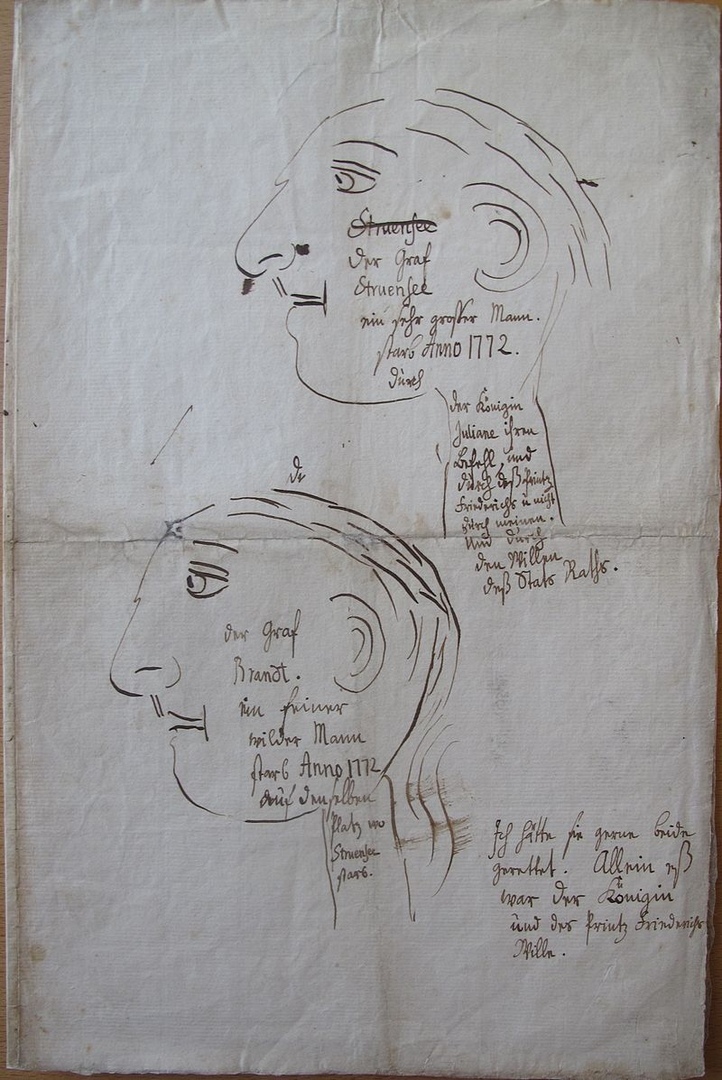 Struensee
der Graf
Struensee
ein sehr grosser Mann.
starb Anno 1772.
durch
der Königin
Juliane ihren
Befehl, und
durch deß Printz
Friederichs u nicht
durch meinen.
und durch
den Willen
deß Stats Raths.
de
der Graf
Brandt.
ein feiner
wilder Mann
starb Anno 1772
auf denselben
Platz wo
Struensee
starb.
Ich hätte sie gerne beide
gerettet. Allein eß
war der Königin
und des Printz Friederichs
Wille.